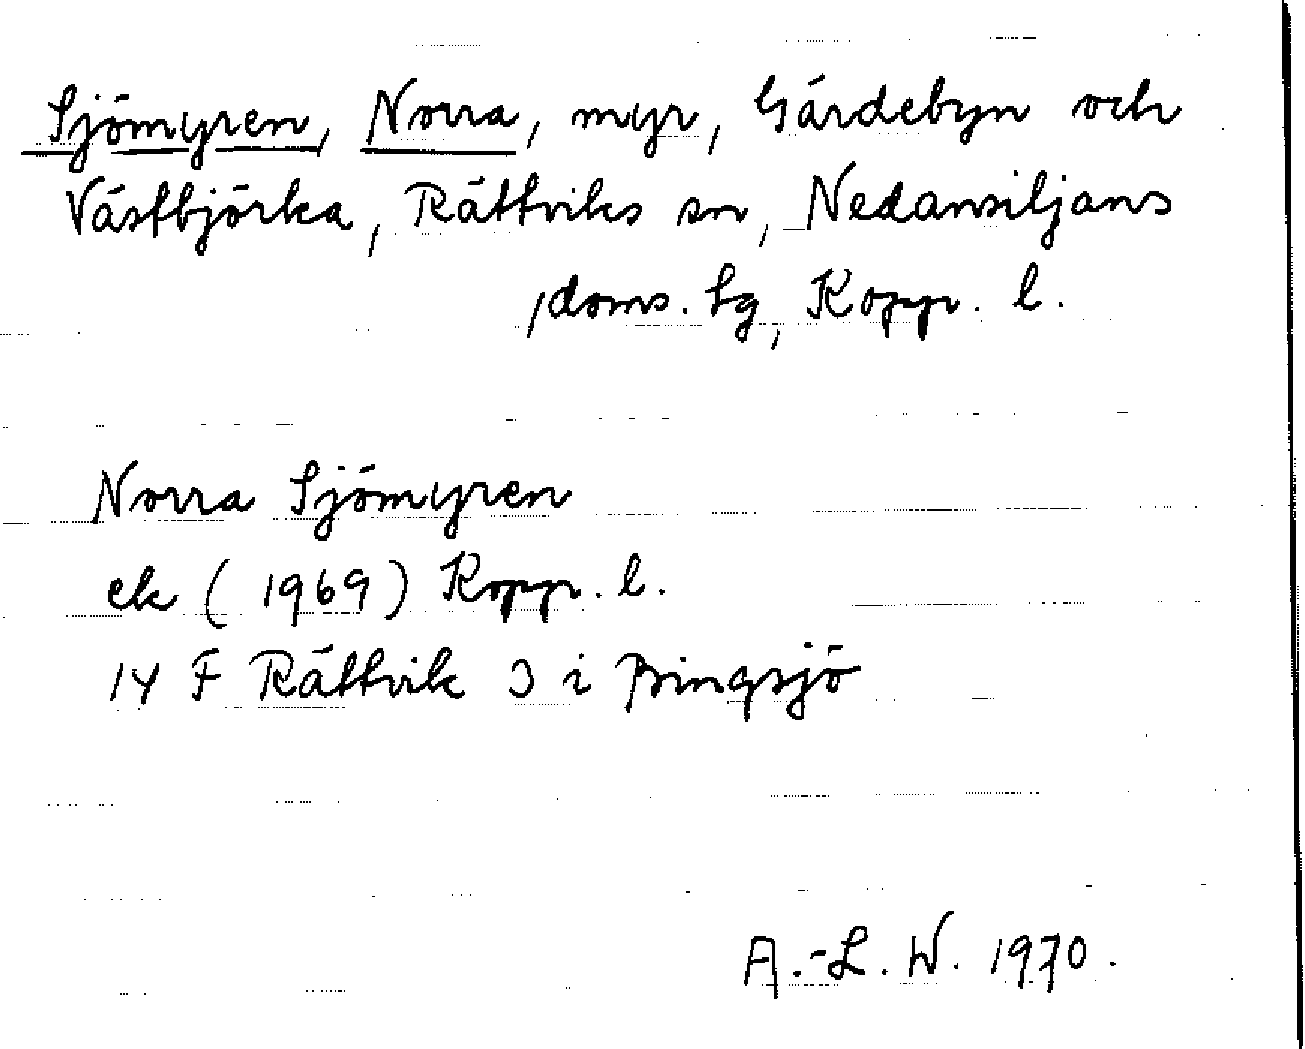 Sjömyren, Norra, myr, Gärdebyn och
Västbjörka, Rättviks sn, Nedansiljans
doms. tg, Kopp. l.
Norra Sjömyren
ek (1969) Kopp. l.
14 F Rättvik 3 i Bingsjö
A.-L. W. 1970.